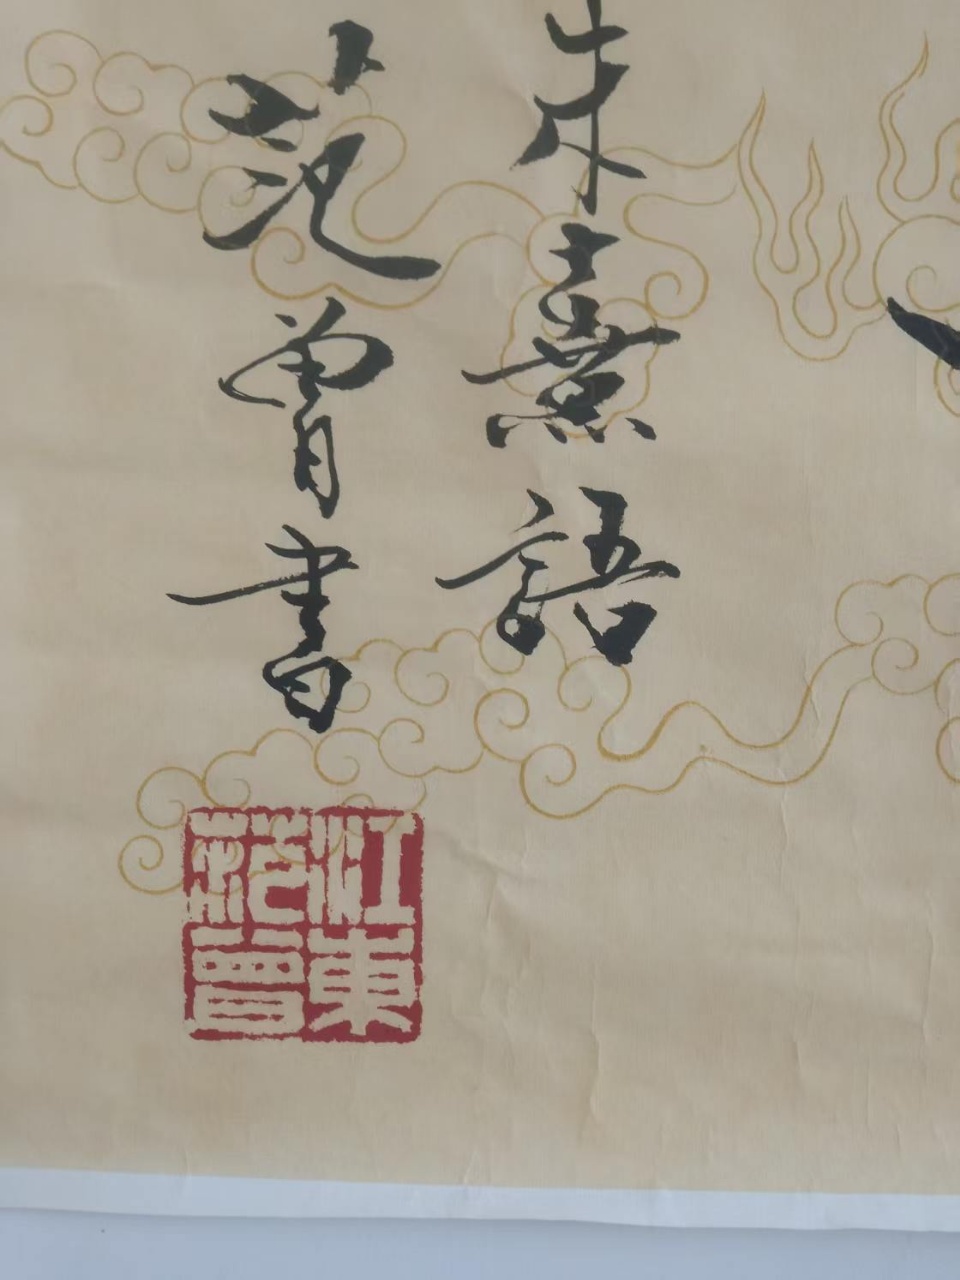 朱熹語
范曾書
江東
范曾